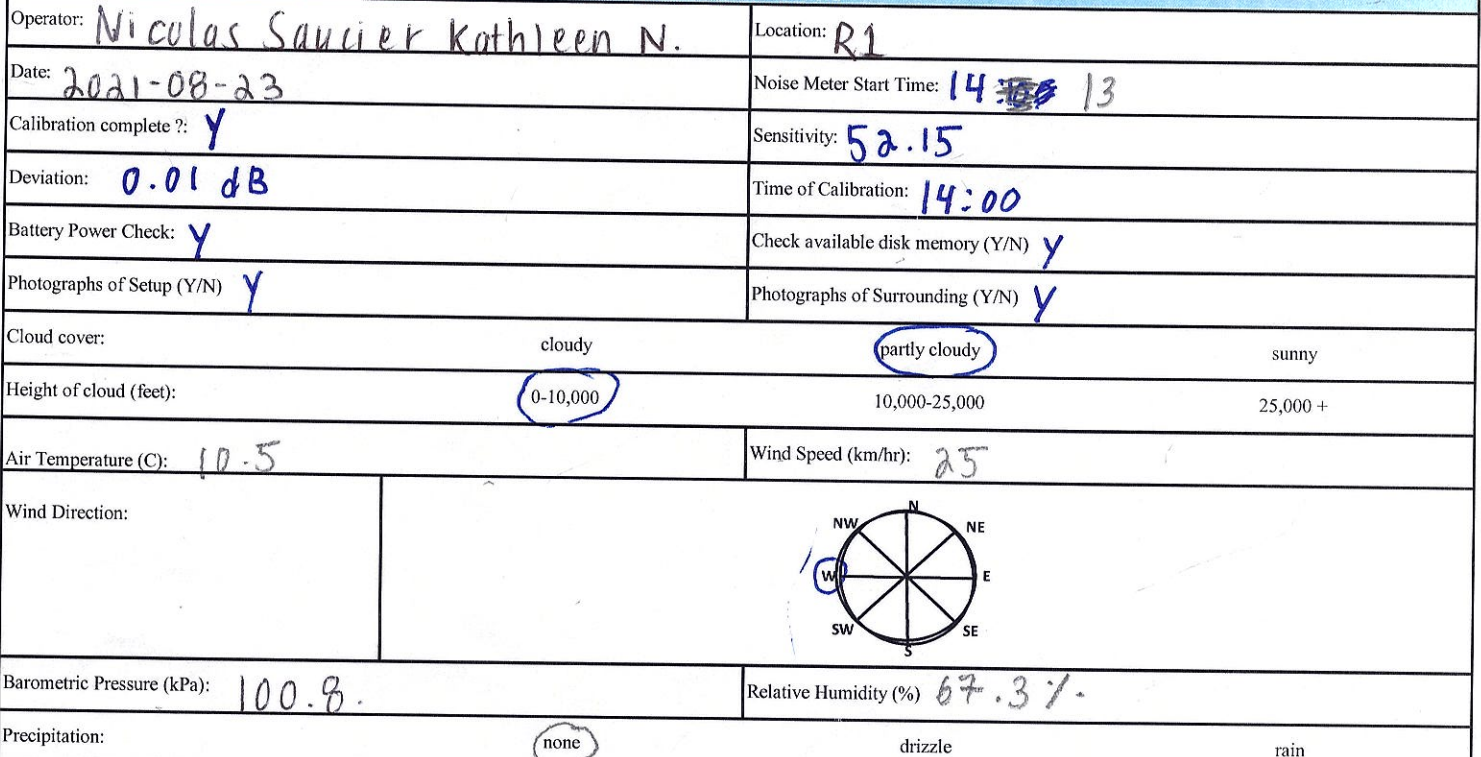 Operator: Nicolas Saucier Kathleen N.
Location: R1
Date: 2021-08-23
Noise Meter Start Time: 14: 13
Calibration complete ?: Y
Sensitivity: 52.15
Deviation: 0.01 dB
Time of Calibration: 14:00
Battery Power Check: Y
Check available disk memory (Y/N) Y
Photographs of Setup (Y/N) Y
Photographs of Surrounding (Y/N) Y
Cloud cover: cloudy partly cloudy sunny
Height of cloud (feet): 0-10,000 10,000-25,000 25,000 +
Air Temperature (C): 10.5
Wind Speed (km/hr): 25
Wind Direction:
N
NW NE
W E
SW SE
S
Barometric Pressure (kPa): 100.8.
Relative Humidity (%) 67.3%.
Precipitation: none drizzle rain